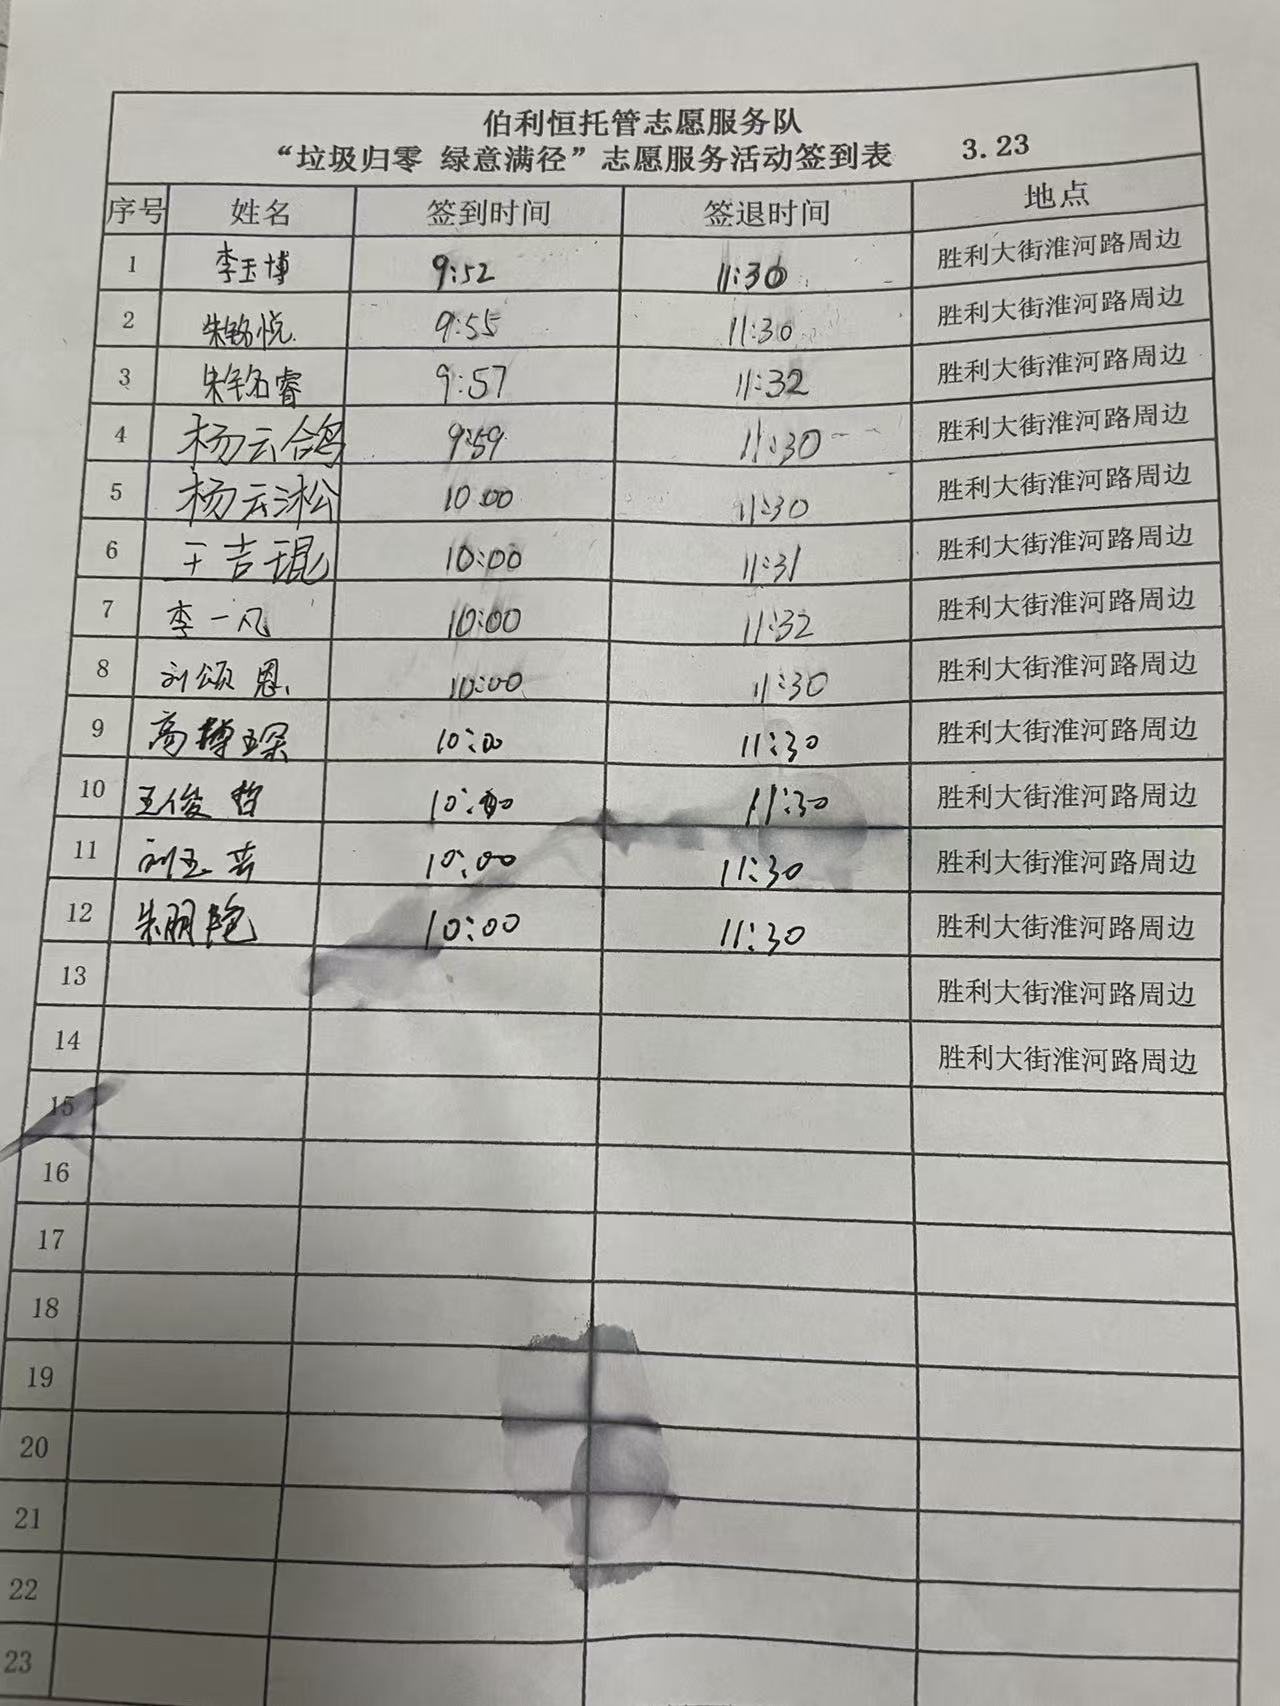 伯利恒托管志愿服务队
“垃圾归零 绿意满径”志愿服务活动签到表 3.23
序号 姓名 签到时间 签退时间 地点
1 李玉博 9:52 11:30 胜利大街淮河路周边
2 朱铭悦 9:55 11:30 胜利大街淮河路周边
3 朱铭睿 9:57 11:32 胜利大街淮河路周边
4 杨云鸽 9:59 11:30 胜利大街淮河路周边
5 杨云淞 10:00 11:30 胜利大街淮河路周边
6 王吉琨 10:00 11:31 胜利大街淮河路周边
7 李一凡 10:00 11:32 胜利大街淮河路周边
8 刘颂恩 10:00 11:30 胜利大街淮河路周边
9 高博琛 10:00 11:30 胜利大街淮河路周边
10 王俊哲 10:00 11:30 胜利大街淮河路周边
11 刘玉 10:00 11:30 胜利大街淮河路周边
12 朱 10:00 11:30 胜利大街淮河路周边
13 胜利大街淮河路周边
14 胜利大街淮河路周边
15
16
17
18
19
20
21
22
23